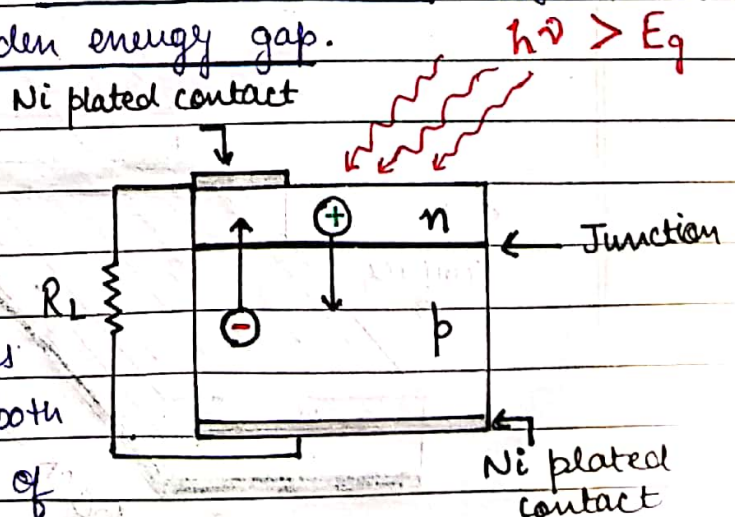 den energy gap.
hν > Eg
Ni plated contact
+
n
Junction
RL
-
p
s
both
of
Ni plated
contact